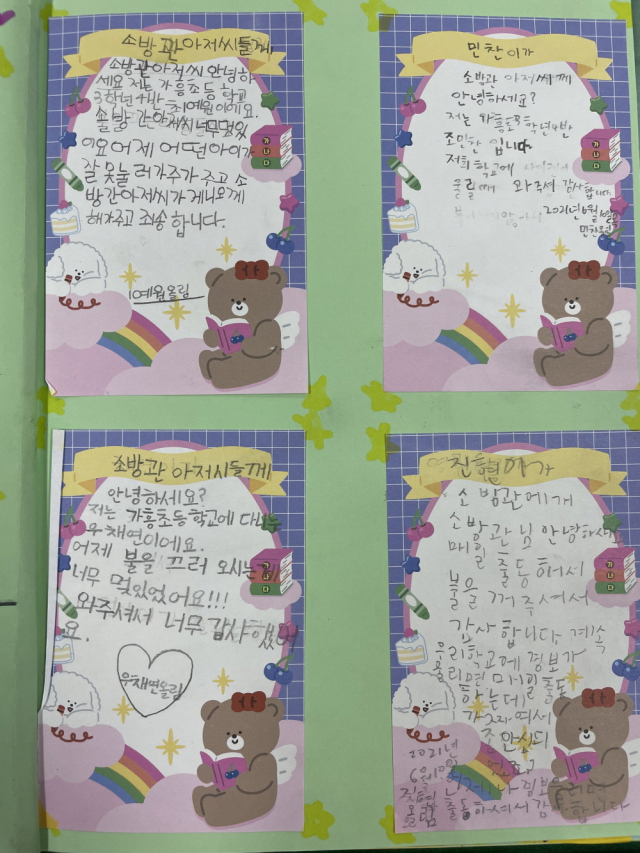 소방관아저씨들께
소방관아저씨 안녕하
세요 저는 가흥초등학교
3학년4반 최예원이에요.
소방관아저씨너무멋있
어요어제 어떤아이가
잘못눌러가주가 주고 소
방간아저씨가게나오게
해가주고 죄송합니다.
예원올림
민찬이가
소방관 아저씨께
안녕하세요?
저는 가흥초3학년4반
조민찬 입니다
저희학교에
울릴때 와주셔 감사합니다.
2021년6월
소방관 아저시들께
안녕하세요?
저는 가흥초등학교에 다니는
우채연이에요.
어제 불을 끄러 오시는게
너무 멋있었어요!!!
와주셔서 너무 감사했어
요.
우채연올림
진형이가
소방관에게
소방관님 안녕하세
매일 출동해서
불을 꺼주셔서
감사합니다 계속
우리학교에 경보가
울리면 매일 출동
하는데
가짜여서
2021년
출동하셔서 감사합니다